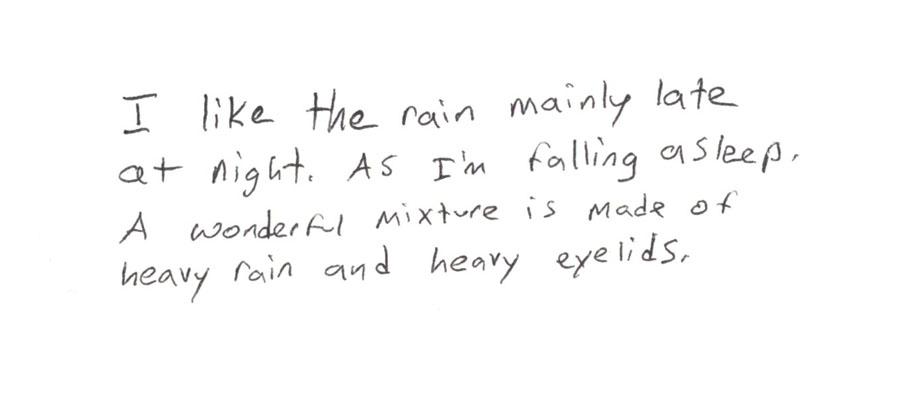 I like the rain mainly late
at night. As I'm falling asleep.
A wonderful mixture is made of
heavy rain and heavy eyelids.